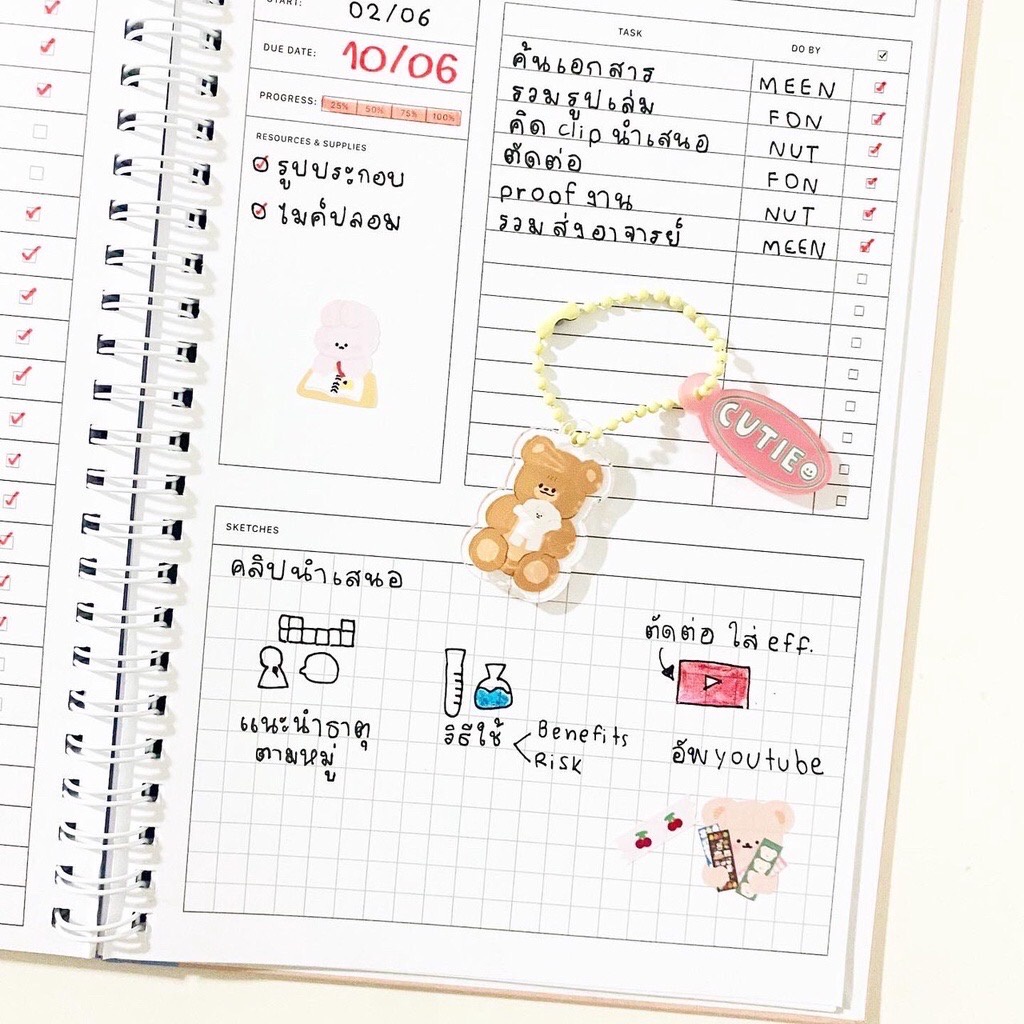 START:
02/06
DUE DATE:
10/06
PROGRESS:
25% 50% 75% 100%
RESOURCES & SUPPLIES
รูปประกอบ
ไมค์ปลอม
TASK DO BY
ค้นเอกสาร MEEN
รวมรูปเล่ม FON
คิด clip นำเสนอ NUT
ตัดต่อ FON
proof งาน NUT
รวมส่งอาจารย์ MEEN
CUTIE
SKETCHES
คลิปนำเสนอ
แนะนำธาตุ
ตามหมู่
วิธีใช้
Benefits
Risk
ตัดต่อ ใส่ eff.
อัพ youtube